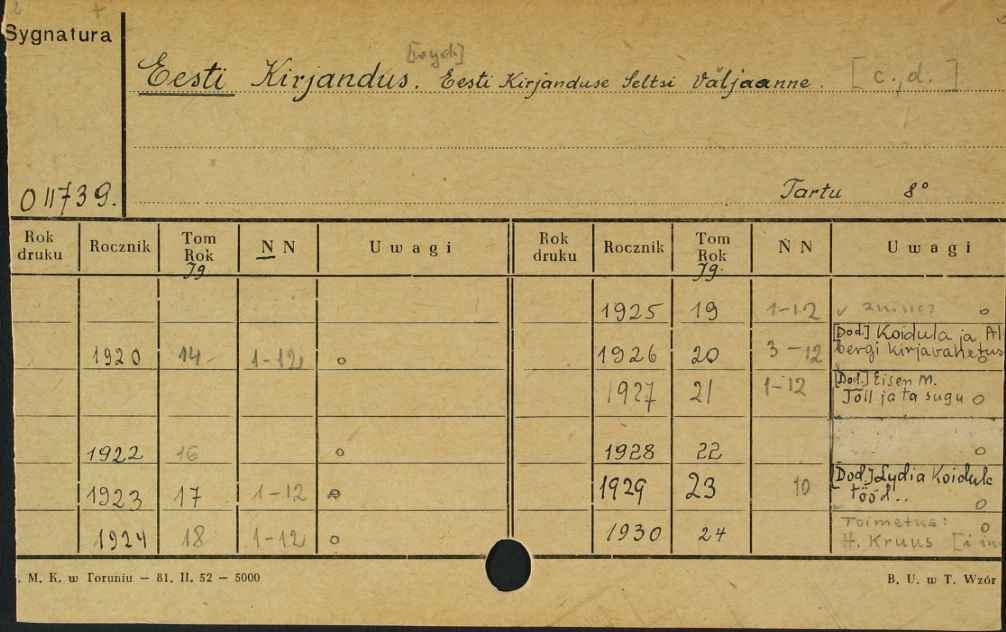 Sygnatura
[wyd.]
Eesti Kirjandus. Eesti Kirjanduse Seltsi Väljaanne. [c.d.]
011739.
Tartu 8°
Rok druku Rocznik Tom Rok Jg. N N Uwagi Rok druku Rocznik Tom Rok Jg. N N Uwagi
1925 19 1-12
1920 14 1-12 o 1926 20 3-12 [Dod.] Koidula ja Al
bergi kirjavahetus
1927 21 1-12 [Dod.] Eisen M.
Tõll ja ta sugu o
1922 16 o 1928 22 o
1923 17 1-12 o 1929 23 10 [Dod.] Lydia Koidula
tööd.. o
1924 18 1-12 o 1930 24 Toimetus: o
H. Kruus [i in
. M. K. w Toruniu – 81. II. 52 – 5000 B. U. w T. Wzór